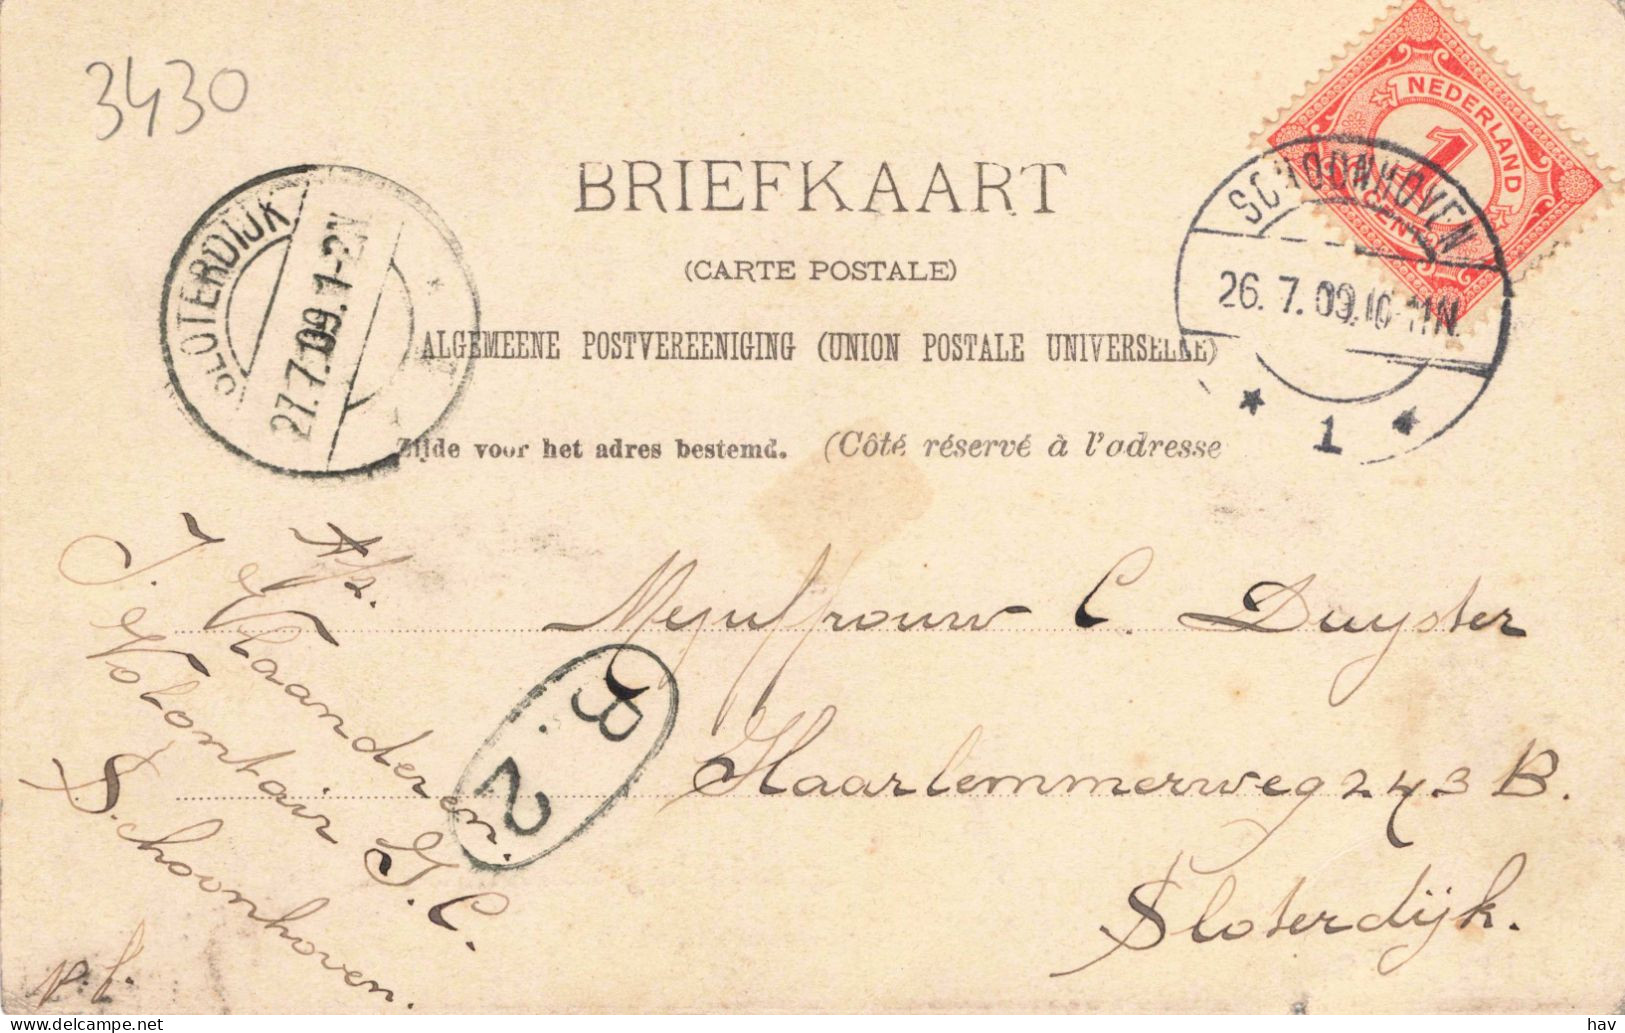 3430
NEDERLAND
1
CENT
BRIEFKAART
(CARTE POSTALE)
ALGEMEENE POSTVEREENIGING (UNION POSTALE UNIVERSELLE)
Zijde voor het adres bestemd. (Côté réservé à l'adresse
SLOTERDIJK
27.7.09.1-2N
SCHOONHOVEN
26.7.09.10-11N.
1
Mejuffrouw C. Duyster
Haarlemmerweg 243 B.
Sloterdijk.
B.
2
Afz.
J. Vlaanderen.
Volontair G.C.
Schoonhoven.
p.f.
hav